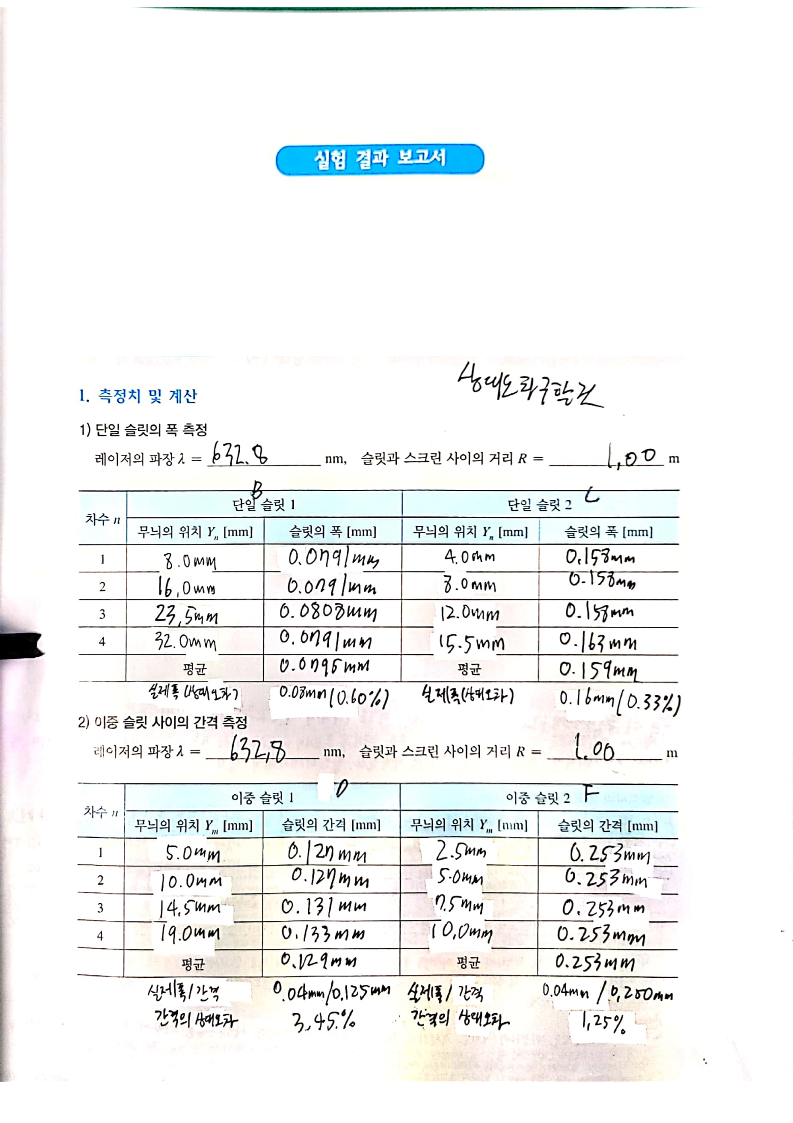 실험 결과 보고서
상대오차구할것
1. 측정치 및 계산
1) 단일 슬릿의 폭 측정
레이저의 파장 λ = 632.8 nm, 슬릿과 스크린 사이의 거리 R = 1.00 m
차수 n 단일 슬릿 1 B 단일 슬릿 2 C
무늬의 위치 Yn [mm] 슬릿의 폭 [mm] 무늬의 위치 Yn [mm] 슬릿의 폭 [mm]
1 8.0mm 0.0791mm 4.0mm 0.158mm
2 16.0mm 0.0791mm 8.0mm 0.158mm
3 23.5mm 0.0808mm 12.0mm 0.158mm
4 32.0mm 0.0791mm 15.5mm 0.163mm
평균 0.0795mm 평균 0.159mm
실제폭(상대오차) 0.08mm(0.60%) 실제폭(상대오차) 0.16mm(0.33%)
2) 이중 슬릿 사이의 간격 측정
레이저의 파장 λ = 632.8 nm, 슬릿과 스크린 사이의 거리 R = 1.00 m
차수 n 이중 슬릿 1 D 이중 슬릿 2 F
무늬의 위치 Ym [mm] 슬릿의 간격 [mm] 무늬의 위치 Ym [mm] 슬릿의 간격 [mm]
1 5.0mm 0.127mm 2.5mm 0.253mm
2 10.0mm 0.127mm 5.0mm 0.253mm
3 14.5mm 0.131mm 7.5mm 0.253mm
4 19.0mm 0.133mm 10.0mm 0.253mm
평균 0.129mm 평균 0.253mm
실제폭/간격 0.04mm/0.125mm 실제폭/간격 0.04mm/0.250mm
간격의 상대오차 3.45% 간격의 상대오차 1.25%